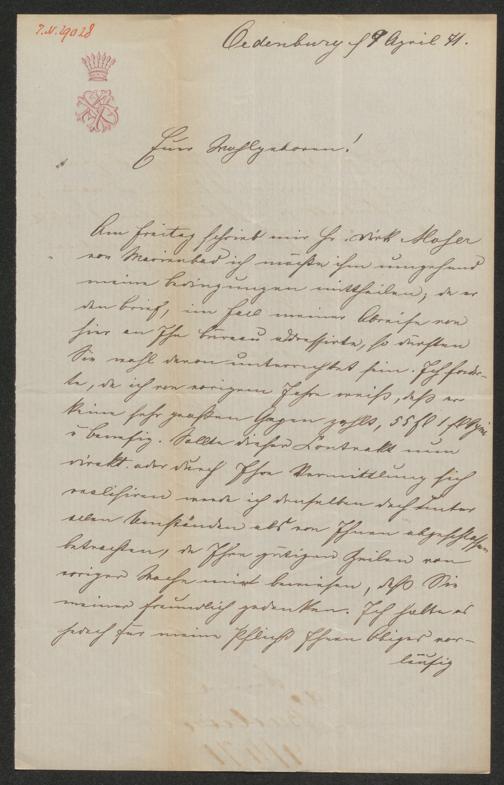 I.N. 19028
Oedenburg d 9 April 71.
Euer Wohlgeboren!
Am Freitag schrieb mir Hr. Dirk. Moser
von Marienbad ich möchte ihm umgehend
meine Bedingungen mittheilen, da er
den Brief, im Fall meiner Abreise von
hier an Ihr Bureau adressirte, so dürften
Sie wohl davon unterrichtet sein. Ich forder-
te, da ich von vorigem Jahre weiß, daß er
keine sehr großen Gagen zahlt, 55 fl 1 fl
u benefiz. Sollte dieser Contrakt nun
direkt oder durch Ihre Vermittlung sich
realisiren werde ich denselben doch unter
allen Umständen als von Ihnen abgeschlossen
betrachten, da Ihre gütigen Zeilen von
voriger Woche mir beweisen, daß Sie
meiner freundlich gedenken. Ich halte es
jedoch für meine Pflicht Ihnen Obiges vor-
läufig